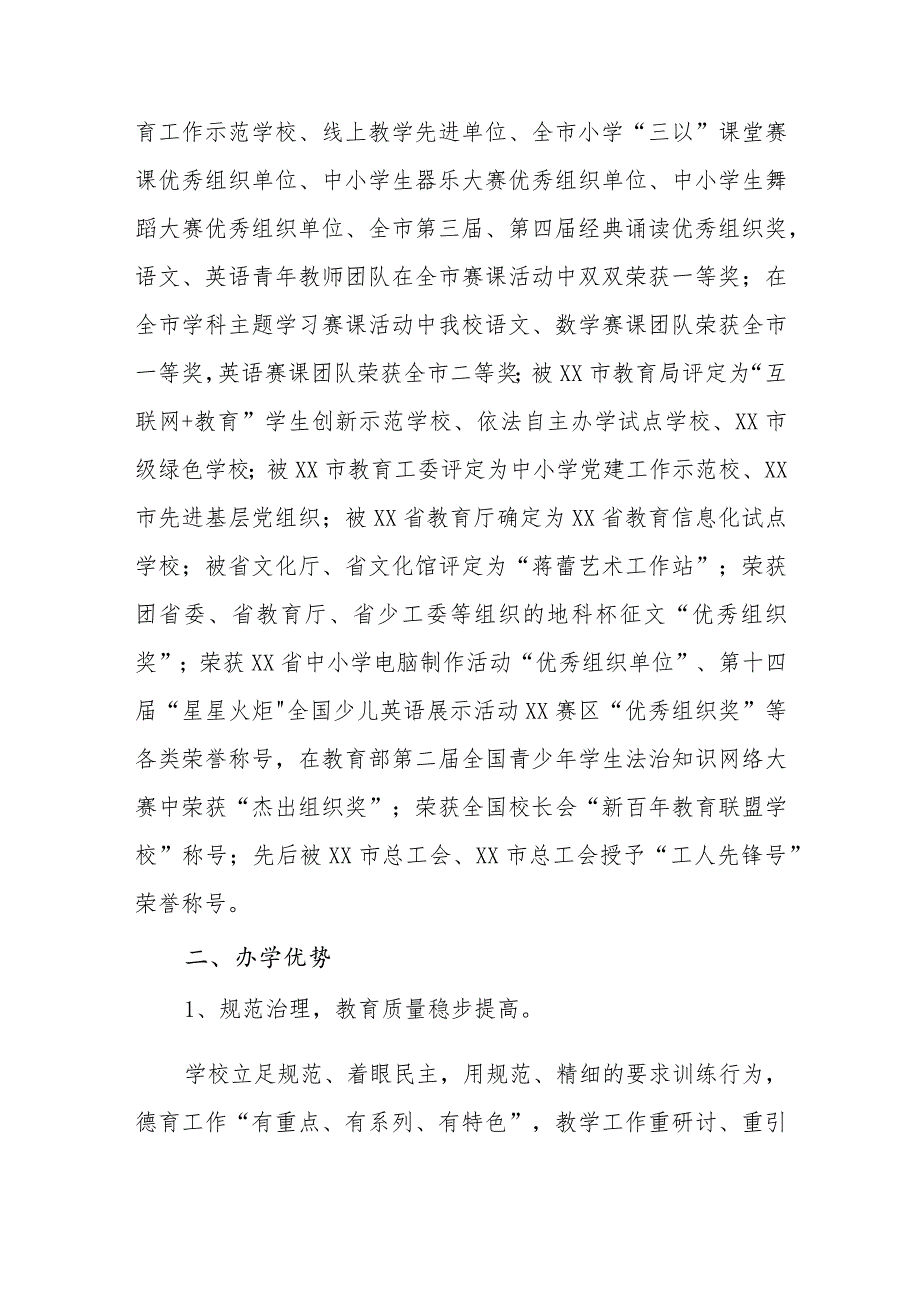 育工作示范学校、线上教学先进单位、全市小学“三以”课堂赛
课优秀组织单位、中小学生器乐大赛优秀组织单位、中小学生舞
蹈大赛优秀组织单位、全市第三届、第四届经典诵读优秀组织奖，
语文、英语青年教师团队在全市赛课活动中双双荣获一等奖；在
全市学科主题学习赛课活动中我校语文、数学赛课团队荣获全市
一等奖,英语赛课团队荣获全市二等奖；被 XX 市教育局评定为“互
联网+教育”学生创新示范学校、依法自主办学试点学校、XX 市
级绿色学校；被 XX 市教育工委评定为中小学党建工作示范校、XX
市先进基层党组织；被 XX 省教育厅确定为 XX 省教育信息化试点
学校；被省文化厅、省文化馆评定为“蒋蕾艺术工作站”；荣获
团省委、省教育厅、省少工委等组织的地科杯征文“优秀组织
奖”；荣获 XX 省中小学电脑制作活动“优秀组织单位”、第十四
届“星星火炬"全国少儿英语展示活动 XX 赛区“优秀组织奖”等
各类荣誉称号，在教育部第二届全国青少年学生法治知识网络大
赛中荣获“杰出组织奖”；荣获全国校长会“新百年教育联盟学
校”称号；先后被 XX 市总工会、XX 市总工会授予“工人先锋号”
荣誉称号。
二、办学优势
1、规范治理，教育质量稳步提高。
学校立足规范、着眼民主，用规范、精细的要求训练行为，
德育工作“有重点、有系列、有特色”，教学工作重研讨、重引